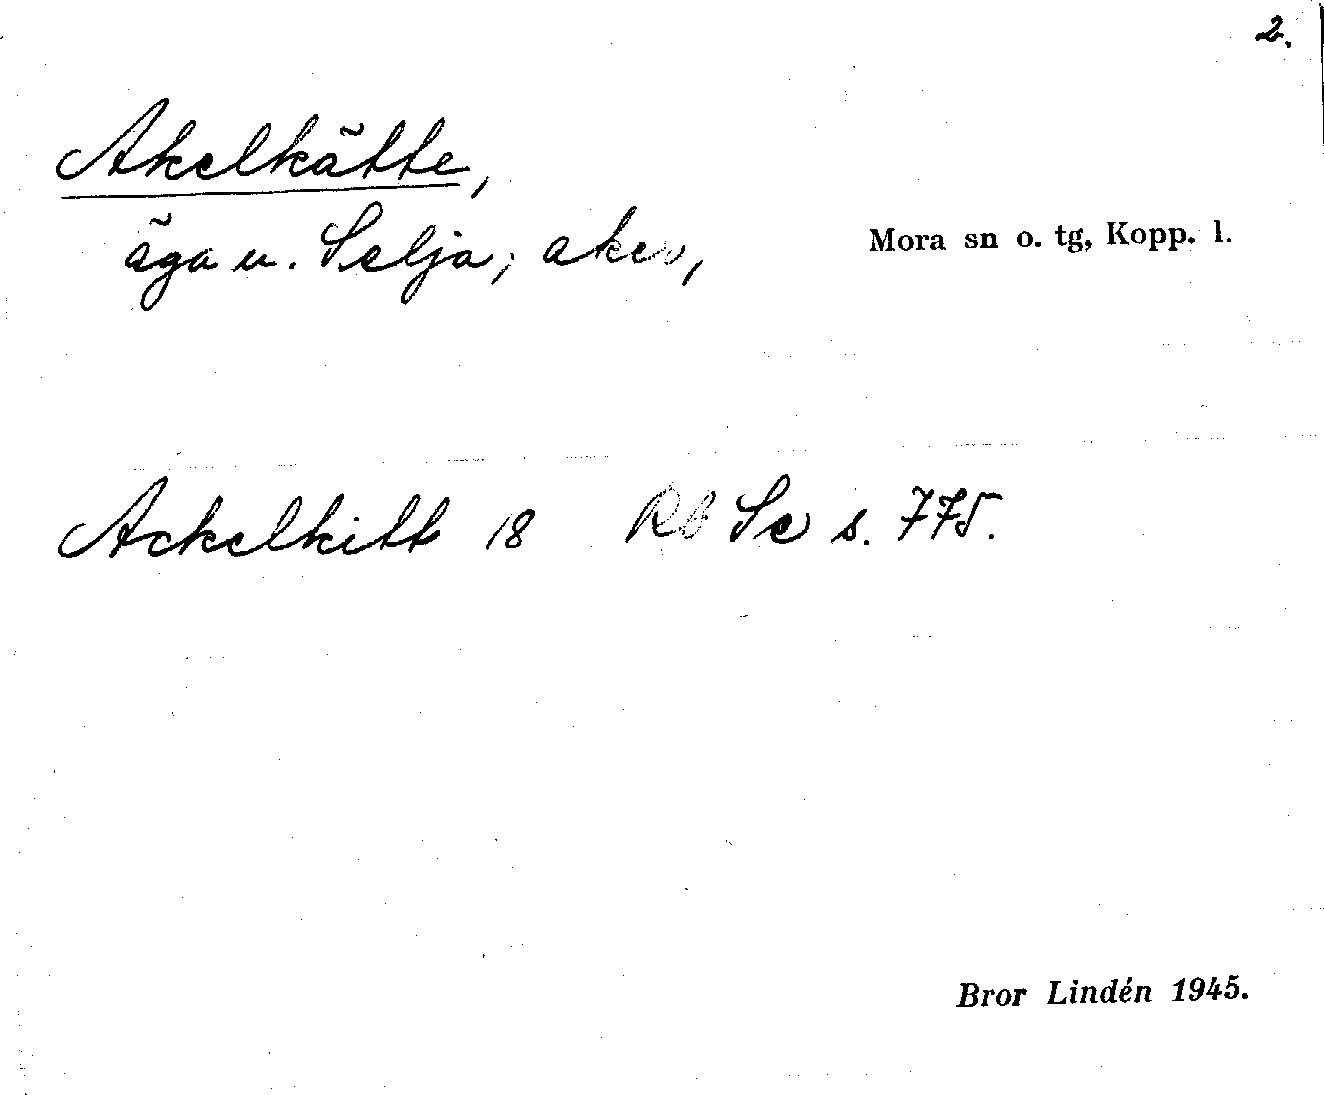 2.
Akelkätte,
äga u. Selja; aker,
Mora sn o. tg, Kopp. l.
Ackelkitt 18 Rb Se s. 775.
Bror Lindén 1945.